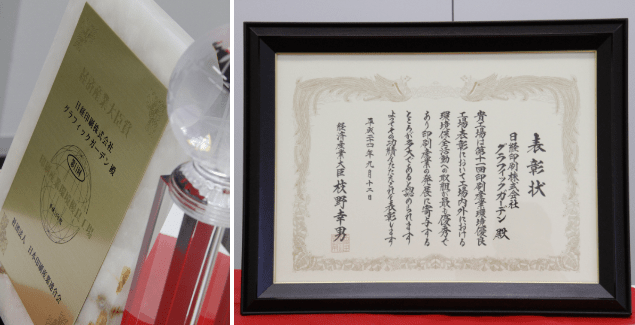 経済産業大臣賞
日経印刷株式会社
グラフィックガーデン 殿
日本印刷産業連合会
表彰状
日経印刷株式会社
グラフィックガーデン 殿
貴工場は第十一回印刷産業環境優良
工場表彰において工場内外における
環境保全活動への取組が最も優秀で
あり印刷産業の発展に寄与する
ところが多大であると認められます
よってその功績をたたえこれを表彰します
平成二十四年九月十二日
経済産業大臣 枝野幸男